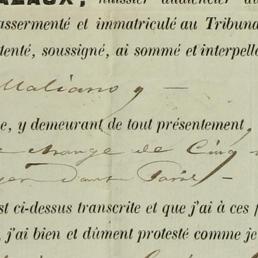 huissier audiencier au
assermenté et immatriculé au Tribuna
tenté, soussigné, ai sommé et interpell
Maliano y —
e, y demeurant de tout présentement,
change de Cinq
dans Paris
st ci-dessus transcrite et que j'ai à ces f
, j'ai bien et dûment protesté comme je